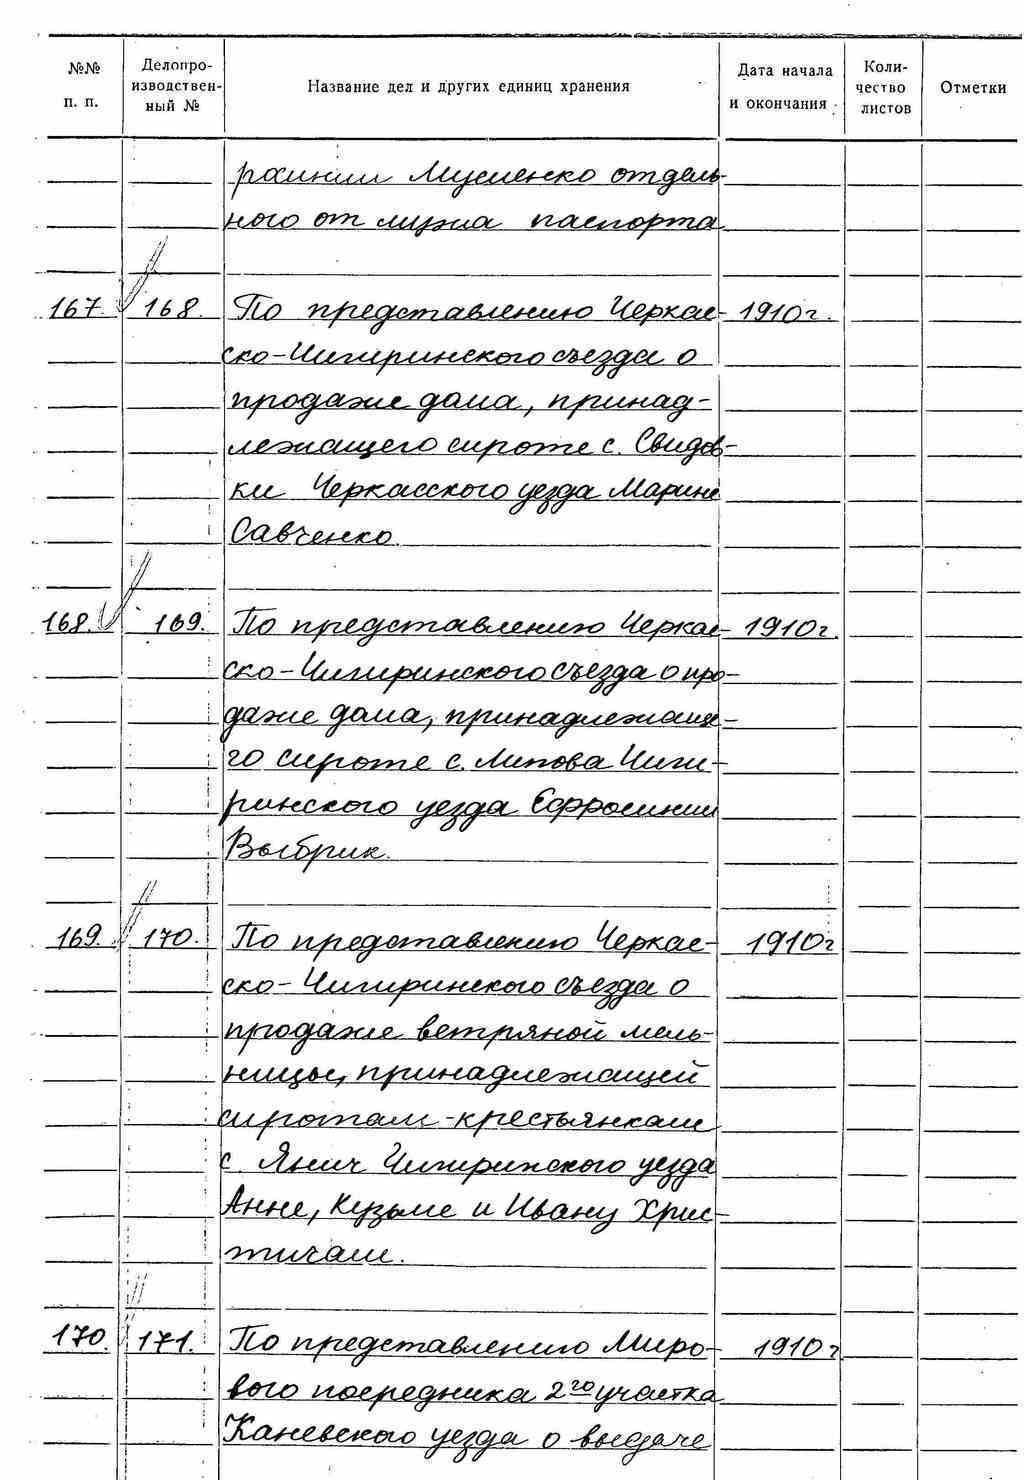 №№ п. п. Делопроизводственный № Название дел и других единиц хранения Дата начала и окончания Количество листов Отметки
росинии Мусиенко отдель-
ного от мужа паспорта
167. 168. По представлению Черкас- 1910 г.
ско-Чигиринского съезда о
продаже дома, принад-
лежащего сироте с. Свидов-
ки Черкасского уезда Марине
Савченко.
168. 169. По представлению Черкас- 1910 г.
ско-Чигиринского съезда о про-
даже дома, принадлежаще-
го сироте с. Липова Чиги-
ринского уезда Ефросинии
Выбрик.
169. 170. По представлению Черкас- 1910 г
ско-Чигиринского съезда о
продаже ветряной мель-
ницы, принадлежащей
сиротам-крестьянкам
с. Янич Чигиринского уезда
Анне, Кузьме и Ивану Хрис-
тичам.
170. 171. По представлению Миро- 1910 г
вого посредника 2го участка
Каневского уезда о выдаче